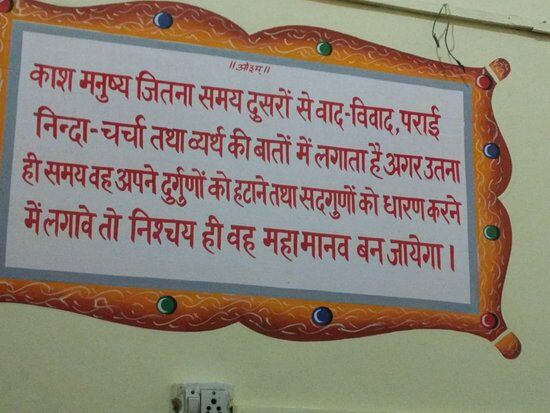 ॥ओ३म्॥
काश मनुष्य जितना समय दुसरों से वाद-विवाद, पराई
निन्दा-चर्चा तथा व्यर्थ की बातों में लगाता है अगर उतना
ही समय वह अपने दुर्गुणों को हटाने तथा सदगुणों को धारण करने
में लगावे तो निश्चय ही वह महामानव बन जायेगा।